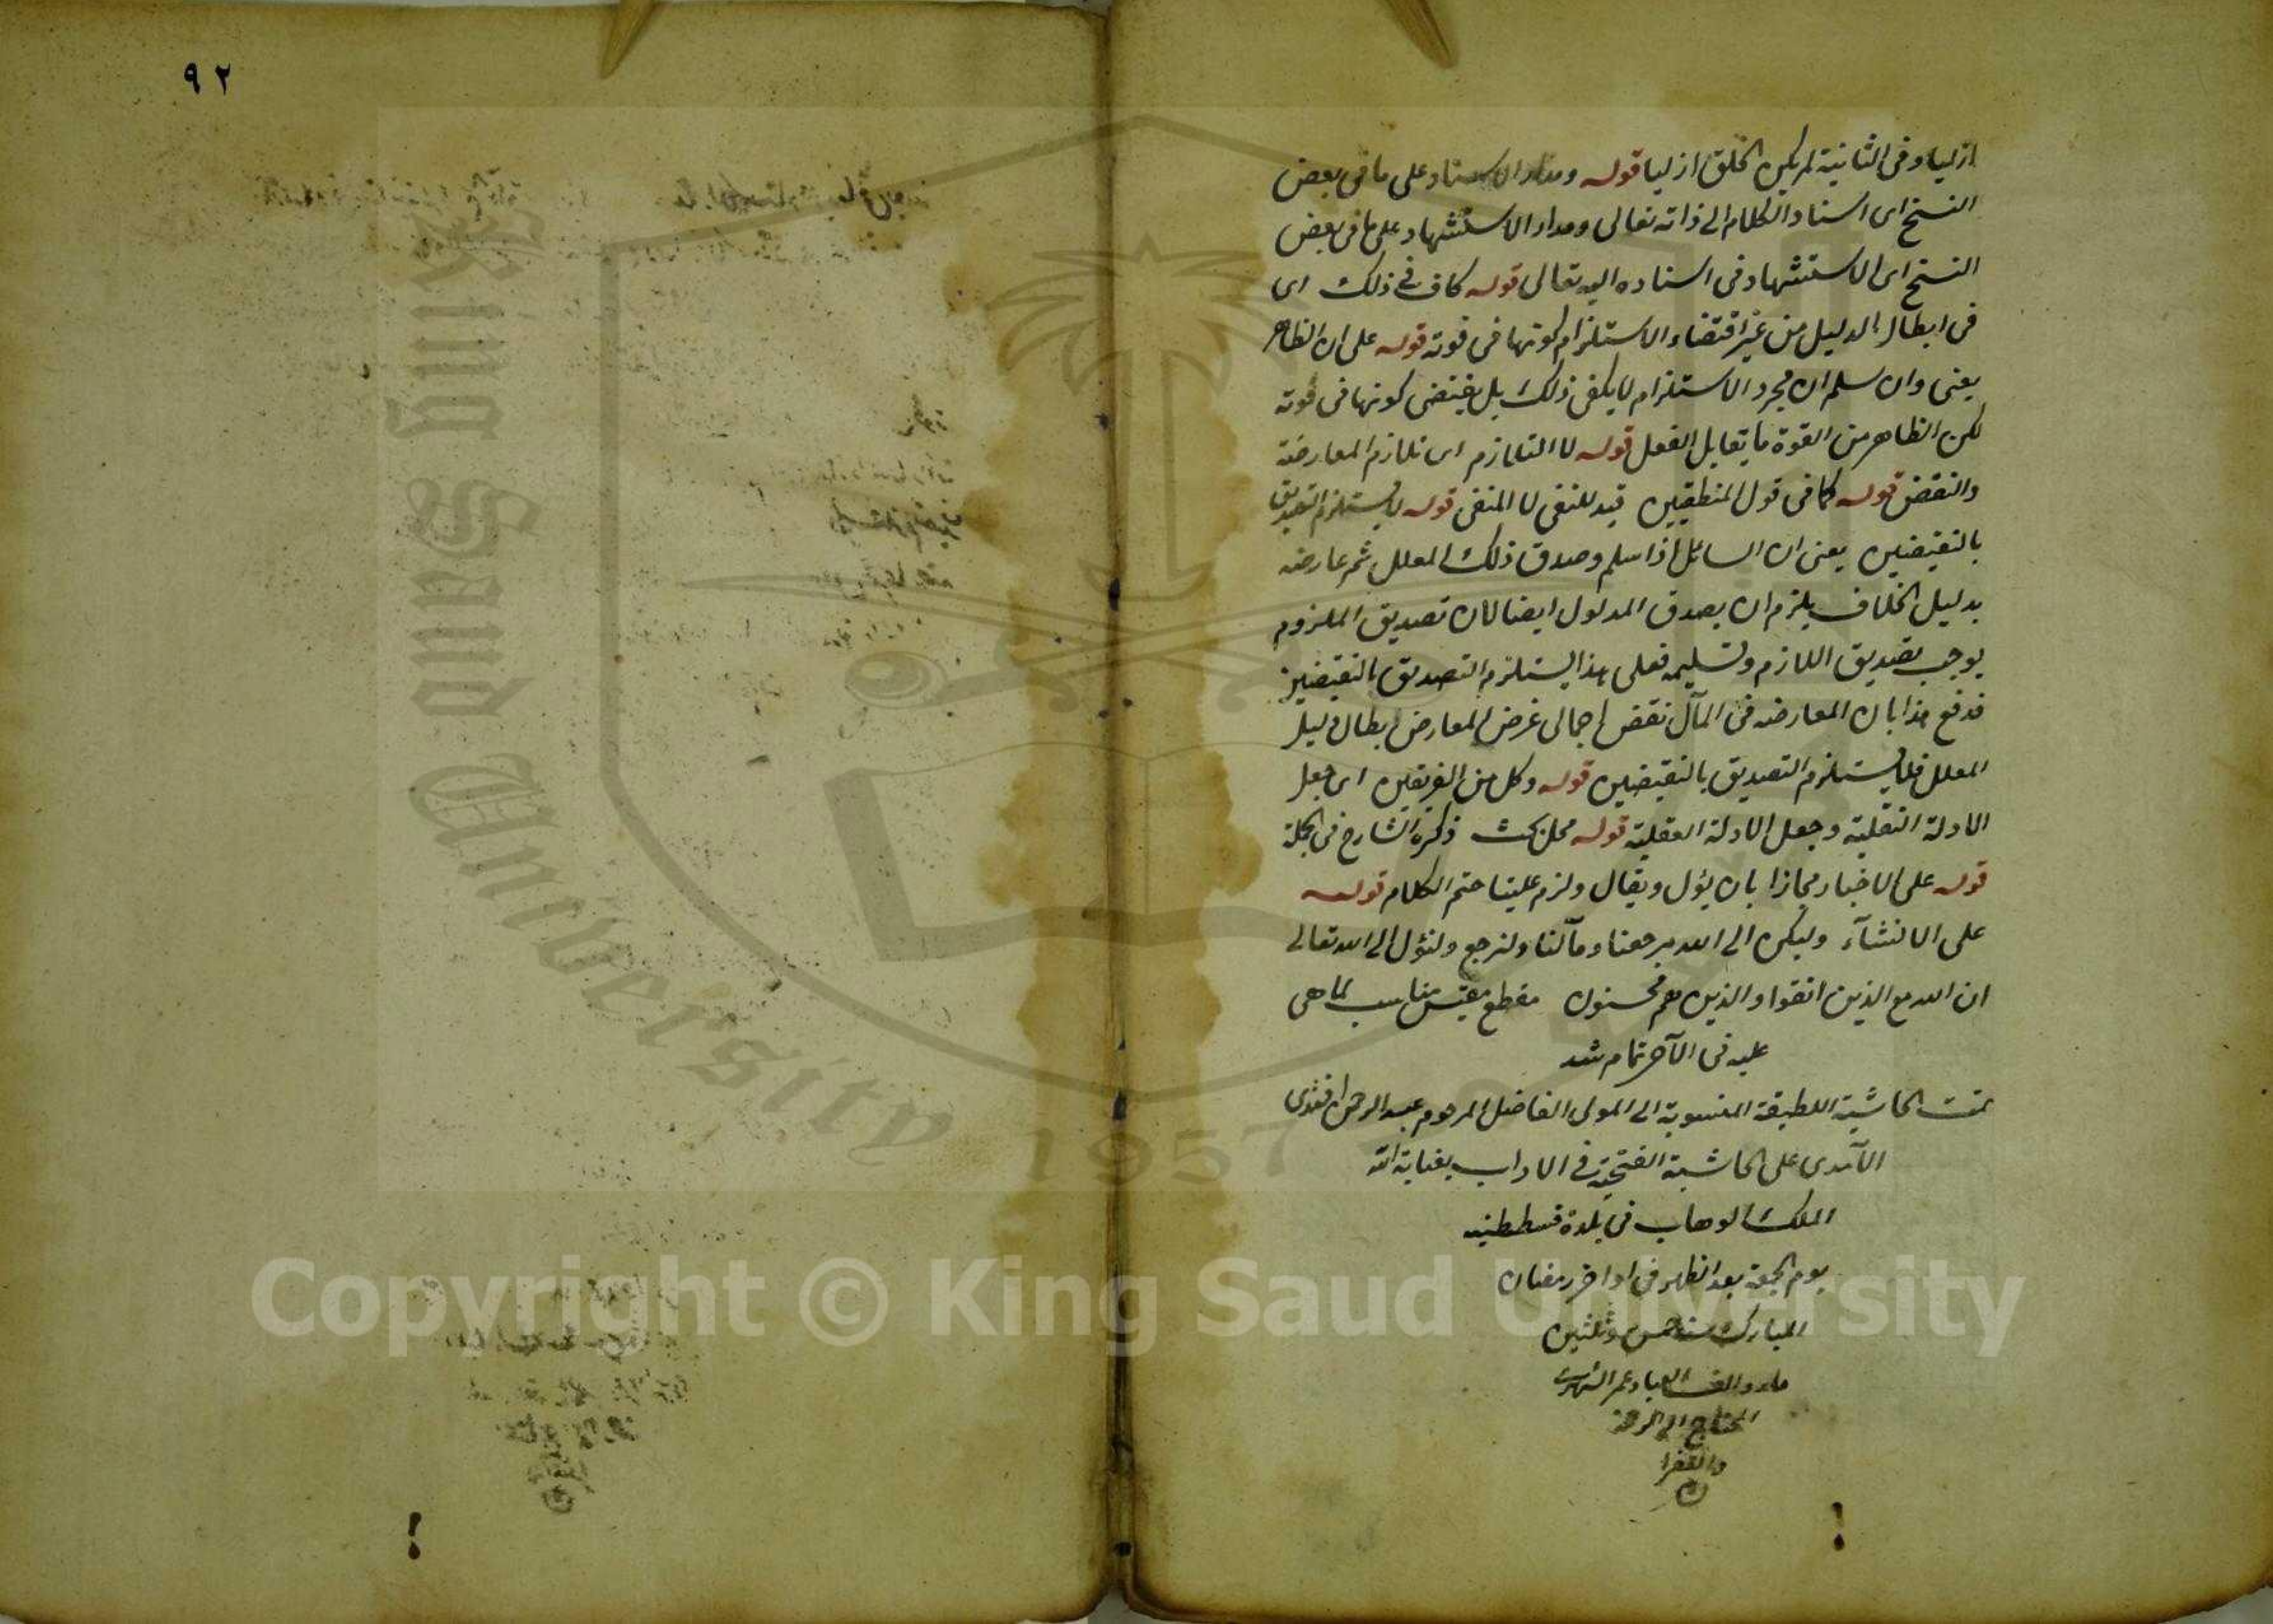 ازليا وفى الثانية لم يكن الخلق ازليا قوله ومدار الاستناد على ما فى بعض
النسخ اى اسناد الكلام الى ذاته تعالى ومدار الاستشهاد على ما فى بعض
النسخ اى الاستشهاد فى اسناده اليه تعالى قوله كاف فى ذلك اى
فى ابطال الدليل من غير اقتضاء الاستلزام كونها فى قوته قوله على ان الظاهر
يعنى وان سلم ان مجرد الاستلزام لا يكفى ذلك بل يقتضى كونها فى قوته
لكن الظاهر من القوة ما يقابل الفعل قوله لا التلازم اى تلازم المعارضة
والنقض قوله كما فى قول المنطقيين قيد للنفى لا المنفى قوله لا يستلزم التصديق
بالنقيضين يعنى ان السائل اذا سلم وصدق ذلك المعلل ثم عارضه
بدليل الخلاف يلزم ان يصدق المدلول ايضا لان تصديق الملزوم
يوجب تصديق اللازم وتسليمه فعلى هذا يستلزم التصديق بالنقيضين
فدفع هذا بان المعارضه فى المآل نقض اجمالى غرض المعارض ابطال دليل
المعلل فلا يستلزم التصديق بالنقيضين قوله وكل من الفريقين اى جعل
الادلة النقلية وجعل الادلة العقلية قوله محل بحث ذكره الشارح فى الجملة
قوله على الاخبار مجازا بان يؤل ويقال ولزم علينا ختم الكلام قوله
على الانشآء وليكن الى الله مرجعنا ومآلنا ولنرجع ولنؤل الى الله تعالى
ان الله مع الذين اتقوا والذين هم محسنون مقطع مقتبس مناسب لما هى
عليه فى الآخر تمام شد
تمت الحاشية اللطيفة المنسوبة الى المولى الفاضل المرحوم عبد الرحمن افندى
الآمدى على الحاشية الفتحية فى الاداب بعناية الله
الملك الوهاب فى بلدة قسطنطنيه
يوم الجمعة بعد الظهر فى اواخر رمضان
المبارك سنة خمس وثلثين
العباد عمر
المحتاج الى الرحمة
٩٢
Copyright © King Saud University
King Saud University
1957